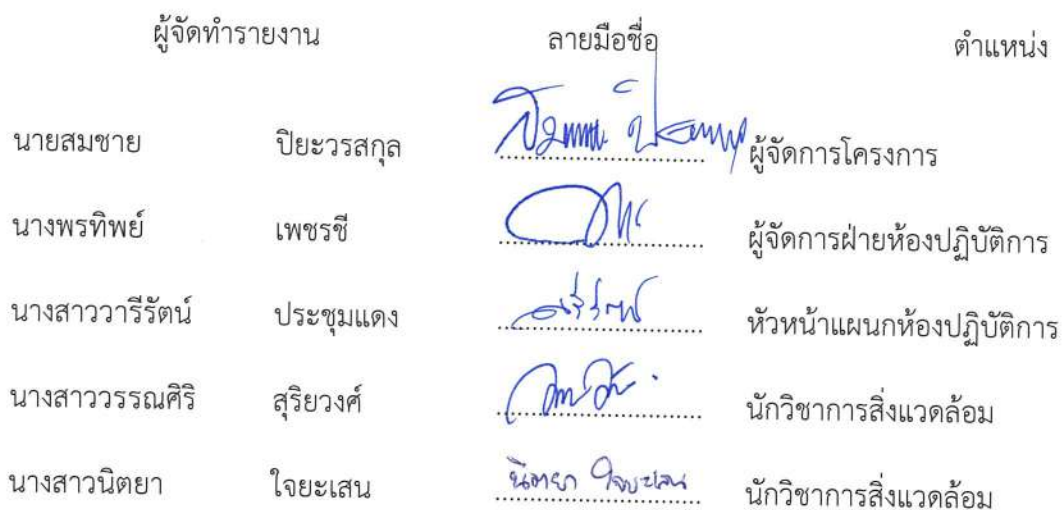 ผู้จัดทำรายงาน ลายมือชื่อ ตำแหน่ง
นายสมชาย ปิยะวรสกุล ผู้จัดการโครงการ
นางพรทิพย์ เพชรชี ผู้จัดการฝ่ายห้องปฏิบัติการ
นางสาววารีรัตน์ ประชุมแดง หัวหน้าแผนกห้องปฏิบัติการ
นางสาววรรณศิริ สุริยวงศ์ นักวิชาการสิ่งแวดล้อม
นางสาวนิตยา ใจยะเสน นิตยา ใจยะเสน นักวิชาการสิ่งแวดล้อม